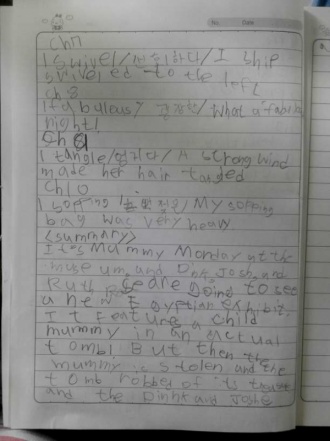 No. Date
Ch 7
1 swivel / 회전하다 / A ship
swiveled to the left
Ch 8
1 fabulous / 굉장한 / What a fabulous
night!
Ch 9
1 tangle / 엉키다 / A strong wind
made her hair tangled
Ch 10
1 sopping / My sopping
bag was very heavy.
<summary>
It's Mummy Monday at the
museum and Dink, Josh, and
Ruth are going to see
a new Egyptian exhibit.
It features a child
mummy in an actual
tomb! But then the
mummy is stolen and the
tomb robbed of its treas
and the Dink and Josh